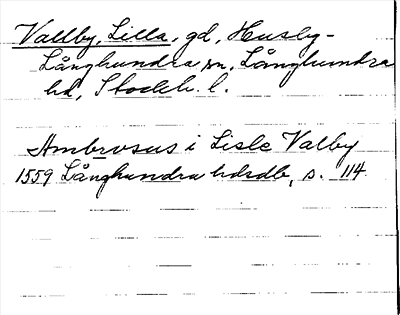 Vallby, Lilla, gd, Husby-
Långhundra sn, Långhundra
hd, Stockh. l.
Ambrosus i Lisle Valby
1559 Långhundra hdsdb, s. 114